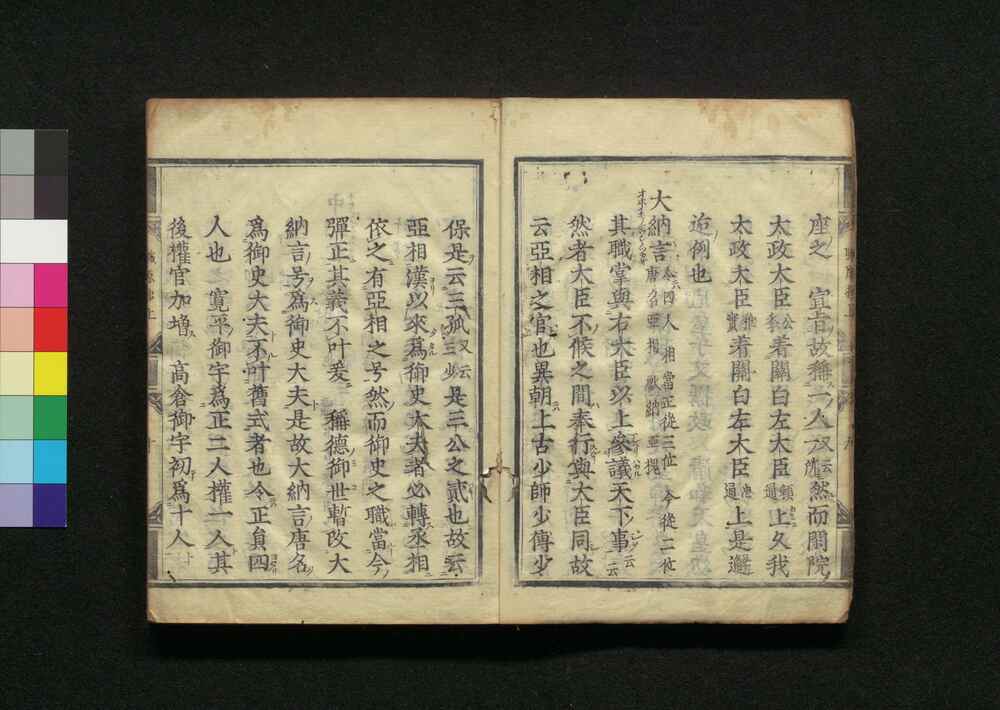 座之 宣旨故稱一人又云然而閑院
太政大臣公季着關白左大臣頼通上久我
太政大臣雅實着關白左大臣忠通上是邂
逅例也
大納言 唐名亞相 相當正從三位 今從二位
其職掌與右大臣以上參議天下事云
然者大臣不候之間奉行與大臣同故
云亞相之官也異朝上古少師少傅少
保是云三孤又云三少是三公之貳也故云
亞相漢以來爲御史大夫者必轉丞相
依之有亞相之号然而御史之職當今
彈正其義不叶爰 稱德御世暫改大
納言号爲御史大夫是故大納言唐名
爲御史大夫不叶舊式者也令正員四
人也 寬平御宇爲正二人權一人其
後權官加增 高倉御宇初爲十人